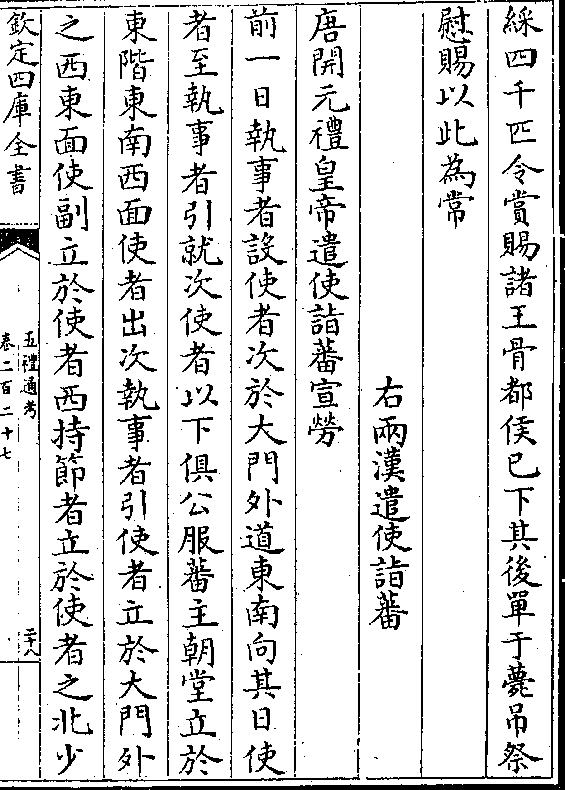 綵四千匹令賞賜諸王骨都侯已下其後單于薨吊祭
慰賜以此為常
右兩漢遣使詣蕃
唐開元禮皇帝遣使詣蕃宣勞
前一日執事者設使者次於大門外道東南向其日使
者至執事者引就次使者以下俱公服蕃主朝堂立於
東階東南西面使者出次執事者引使者立於大門外
之西東面使副立於使者西持節者立於使者之北少
欽定四庫全書
五禮通考
卷二百二十七
二十八